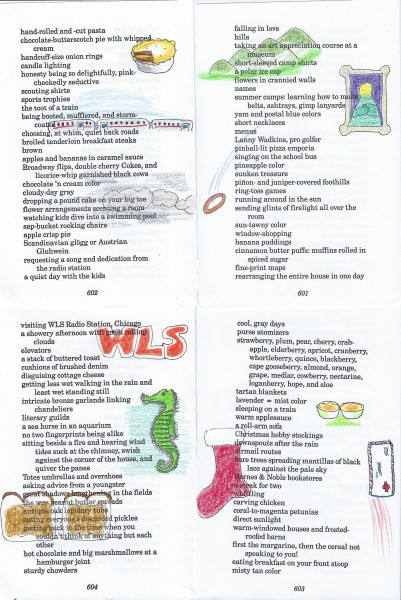 hand-rolled and -cut pasta
chocolate-butterscotch pie with whipped
cream
handcuff-size onion rings
candle lighting
honesty being so delightfully, pink-
checkedly seductive
scouting shirts
sports trophies
the toot of a train
being booted, mufflered, and storm-
coated
choosing, at whim, quiet back roads
broiled tenderloin breakfast steaks
brown
apples and bananas in caramel sauce
Broadway flips, double cherry Cokes, and
licorice-whip garnished black cows
chocolate 'n cream color
cloudy-day gray
dropping a pound cake on your big toe
flower arrangements scenting a room
watching kids dive into a swimming pool
sap-bucket rocking chairs
apple crisp pie
Scandinavian glögg or Austrian
Gluhwein
requesting a song and dedication from
the radio station
a quiet day with the kids
602
falling in love
hills
taking an art appreciation course at a
museum
short-sleeved camp shirts
a polar ice cap
flowers in crannied walls
names
summer camps: learning how to make
belts, ashtrays, gimp lanyards
yam and postal blue colors
short necklaces
menus
Lanny Wadkins, pro golfer
pinball-lit pizza emporia
singing on the school bus
pineapple color
sunken treasure
piñon- and juniper-covered foothills
ring-toss games
running around in the sun
sending glints of firelight all over the
room
sun-tawny color
window-shopping
banana puddings
cinnamon butter puffs: muffins rolled in
spiced sugar
fine-print maps
rearranging the entire house in one day
601
visiting WLS Radio Station, Chicago
a showery afternoon with great rolling
clouds
WLS
elevators
a stack of buttered toast
cushions of brushed denim
disguising cottage cheese
getting less wet walking in the rain and
least wet standing still
intricate bronze garlands linking
chandeliers
literary guilds
a sea horse in an aquarium
no two fingerprints being alike
sitting beside a fire and hearing wind
tides suck at the chimney, swish
against the corner of the house, and
quiver the panes
Totes umbrellas and overshoes
asking advice from a youngster
great shadows gathering in the fields
the way peanut butter spreads
antique oak lapidary tables
eating everyone's discarded pickles
getting back to the time when you
couldn't think of anything but each
other
hot chocolate and big marshmallows at a
hamburger joint
sturdy chowders
604
cool, gray days
purse atomizers
strawberry, plum, pear, cherry, crab-
apple, elderberry, apricot, cranberry,
whortleberry, quince, blackberry,
cape gooseberry, almond, orange,
grape, medlar, cowberry, nectarine,
loganberry, hope, and sloe
tartan blankets
lavender = mist color
sleeping on a train
warm applesauce
a roll-arm sofa
Christmas hobby stockings
downspouts after the rain
airmail routes
bare trees spreading mantillas of black
lace against the pale sky
Barnes & Noble bookstores
a steak for two
whiffling
carving chicken
coral-to-magenta petunias
direct sunlight
warm-windowed houses and frosted-
roofed barns
first the margarine, then the cereal not
speaking to you!
eating breakfast on your front stoop
misty tan color
603